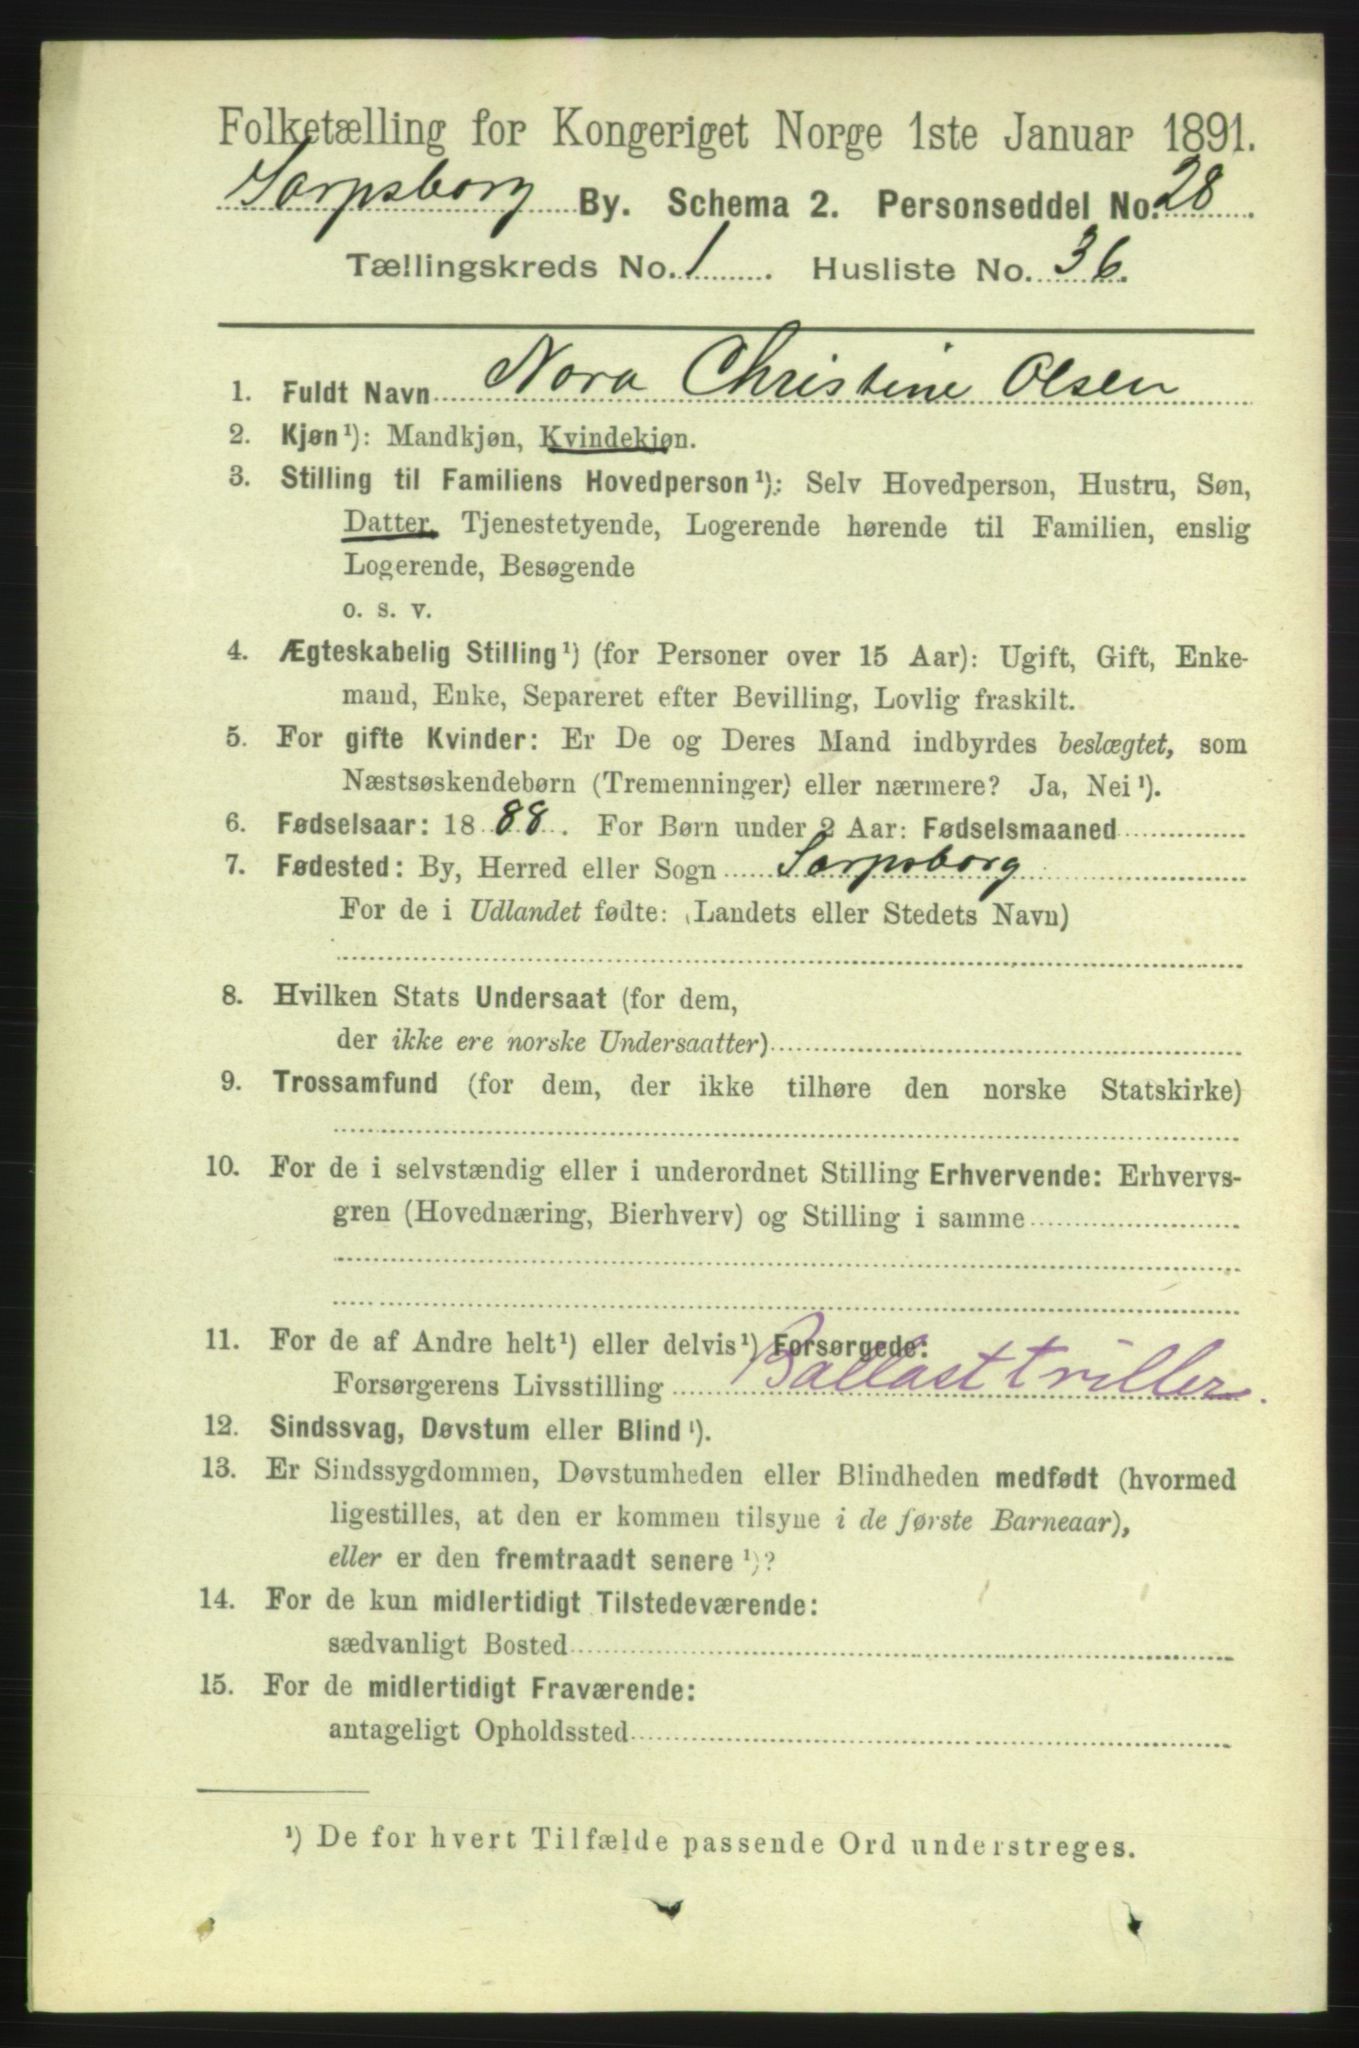 Folketælling for Kongeriget Norge 1ste Januar 1891.
Sarpsborg By. Schema 2. Personseddel No. 28.
Tællingskreds No. 1. Husliste No. 36.
1. Fuldt Navn Nora Christine Olsen
2. Kjøn¹): Mandkjøn, Kvindekjøn.
3. Stilling til Familiens Hovedperson¹): Selv Hovedperson, Hustru, Søn,
Datter, Tjenestetyende, Logerende hørende til Familien, enslig
Logerende, Besøgende
o. s. v.
4. Ægteskabelig Stilling¹) (for Personer over 15 Aar): Ugift, Gift, Enke-
mand, Enke, Separeret efter Bevilling, Lovlig fraskilt.
5. For gifte Kvinder: Er De og Deres Mand indbyrdes beslægtet, som
Næstsøskendebørn (Tremenninger) eller nærmere? Ja, Nei¹).
6. Fødselsaar: 1888. For Børn under 2 Aar: Fødselsmaaned
7. Fødested: By, Herred eller Sogn Sarpsborg
For de i Udlandet fødte: (Landets eller Stedets Navn)
8. Hvilken Stats Undersaat (for dem,
der ikke ere norske Undersaatter)
9. Trossamfund (for dem, der ikke tilhøre den norske Statskirke)
10. For de i selvstændig eller i underordnet Stilling Erhvervende: Erhvervs-
gren (Hovednæring, Bierhverv) og Stilling i samme
11. For de af Andre helt¹) eller delvis¹) Forsørgede:
Forsørgerens Livsstilling Ballasttriller.
12. Sindssvag, Døvstum eller Blind¹).
13. Er Sindssygdommen, Døvstumheden eller Blindheden medfødt (hvormed
ligestilles, at den er kommen tilsyne i de første Barneaar),
eller er den fremtraadt senere¹)?
14. For de kun midlertidigt Tilstedeværende:
sædvanligt Bosted
15. For de midlertidigt Fraværende:
antageligt Opholdssted
¹) De for hvert Tilfælde passende Ord understreges.